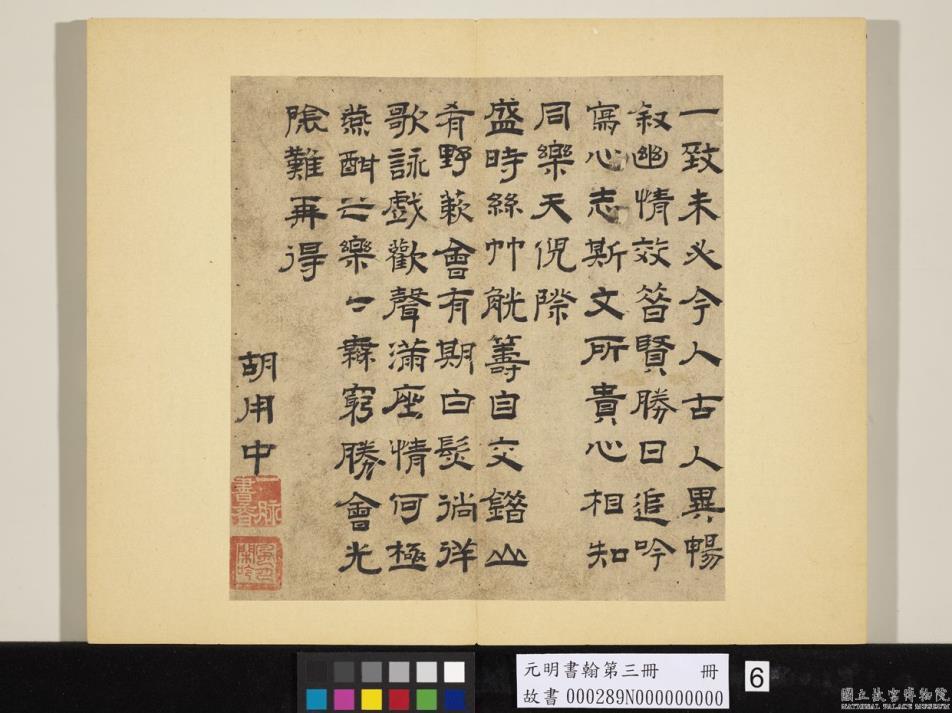 一致未必今人古人異暢
敘幽情效昝賢勝日追吟
寫心志斯文所貴心相知
同樂天倪際
盛時絲竹觥籌自交錯山
肴野蔌會有期白髮徜徉
歌詠戲歡聲滿座情何極
燕酣之樂々無窮勝會光
陰難再得
胡用中
元明書翰第三冊 冊
故書 000289N000000000
6
國立故宮博物院
NATIONAL PALACE MUSEUM